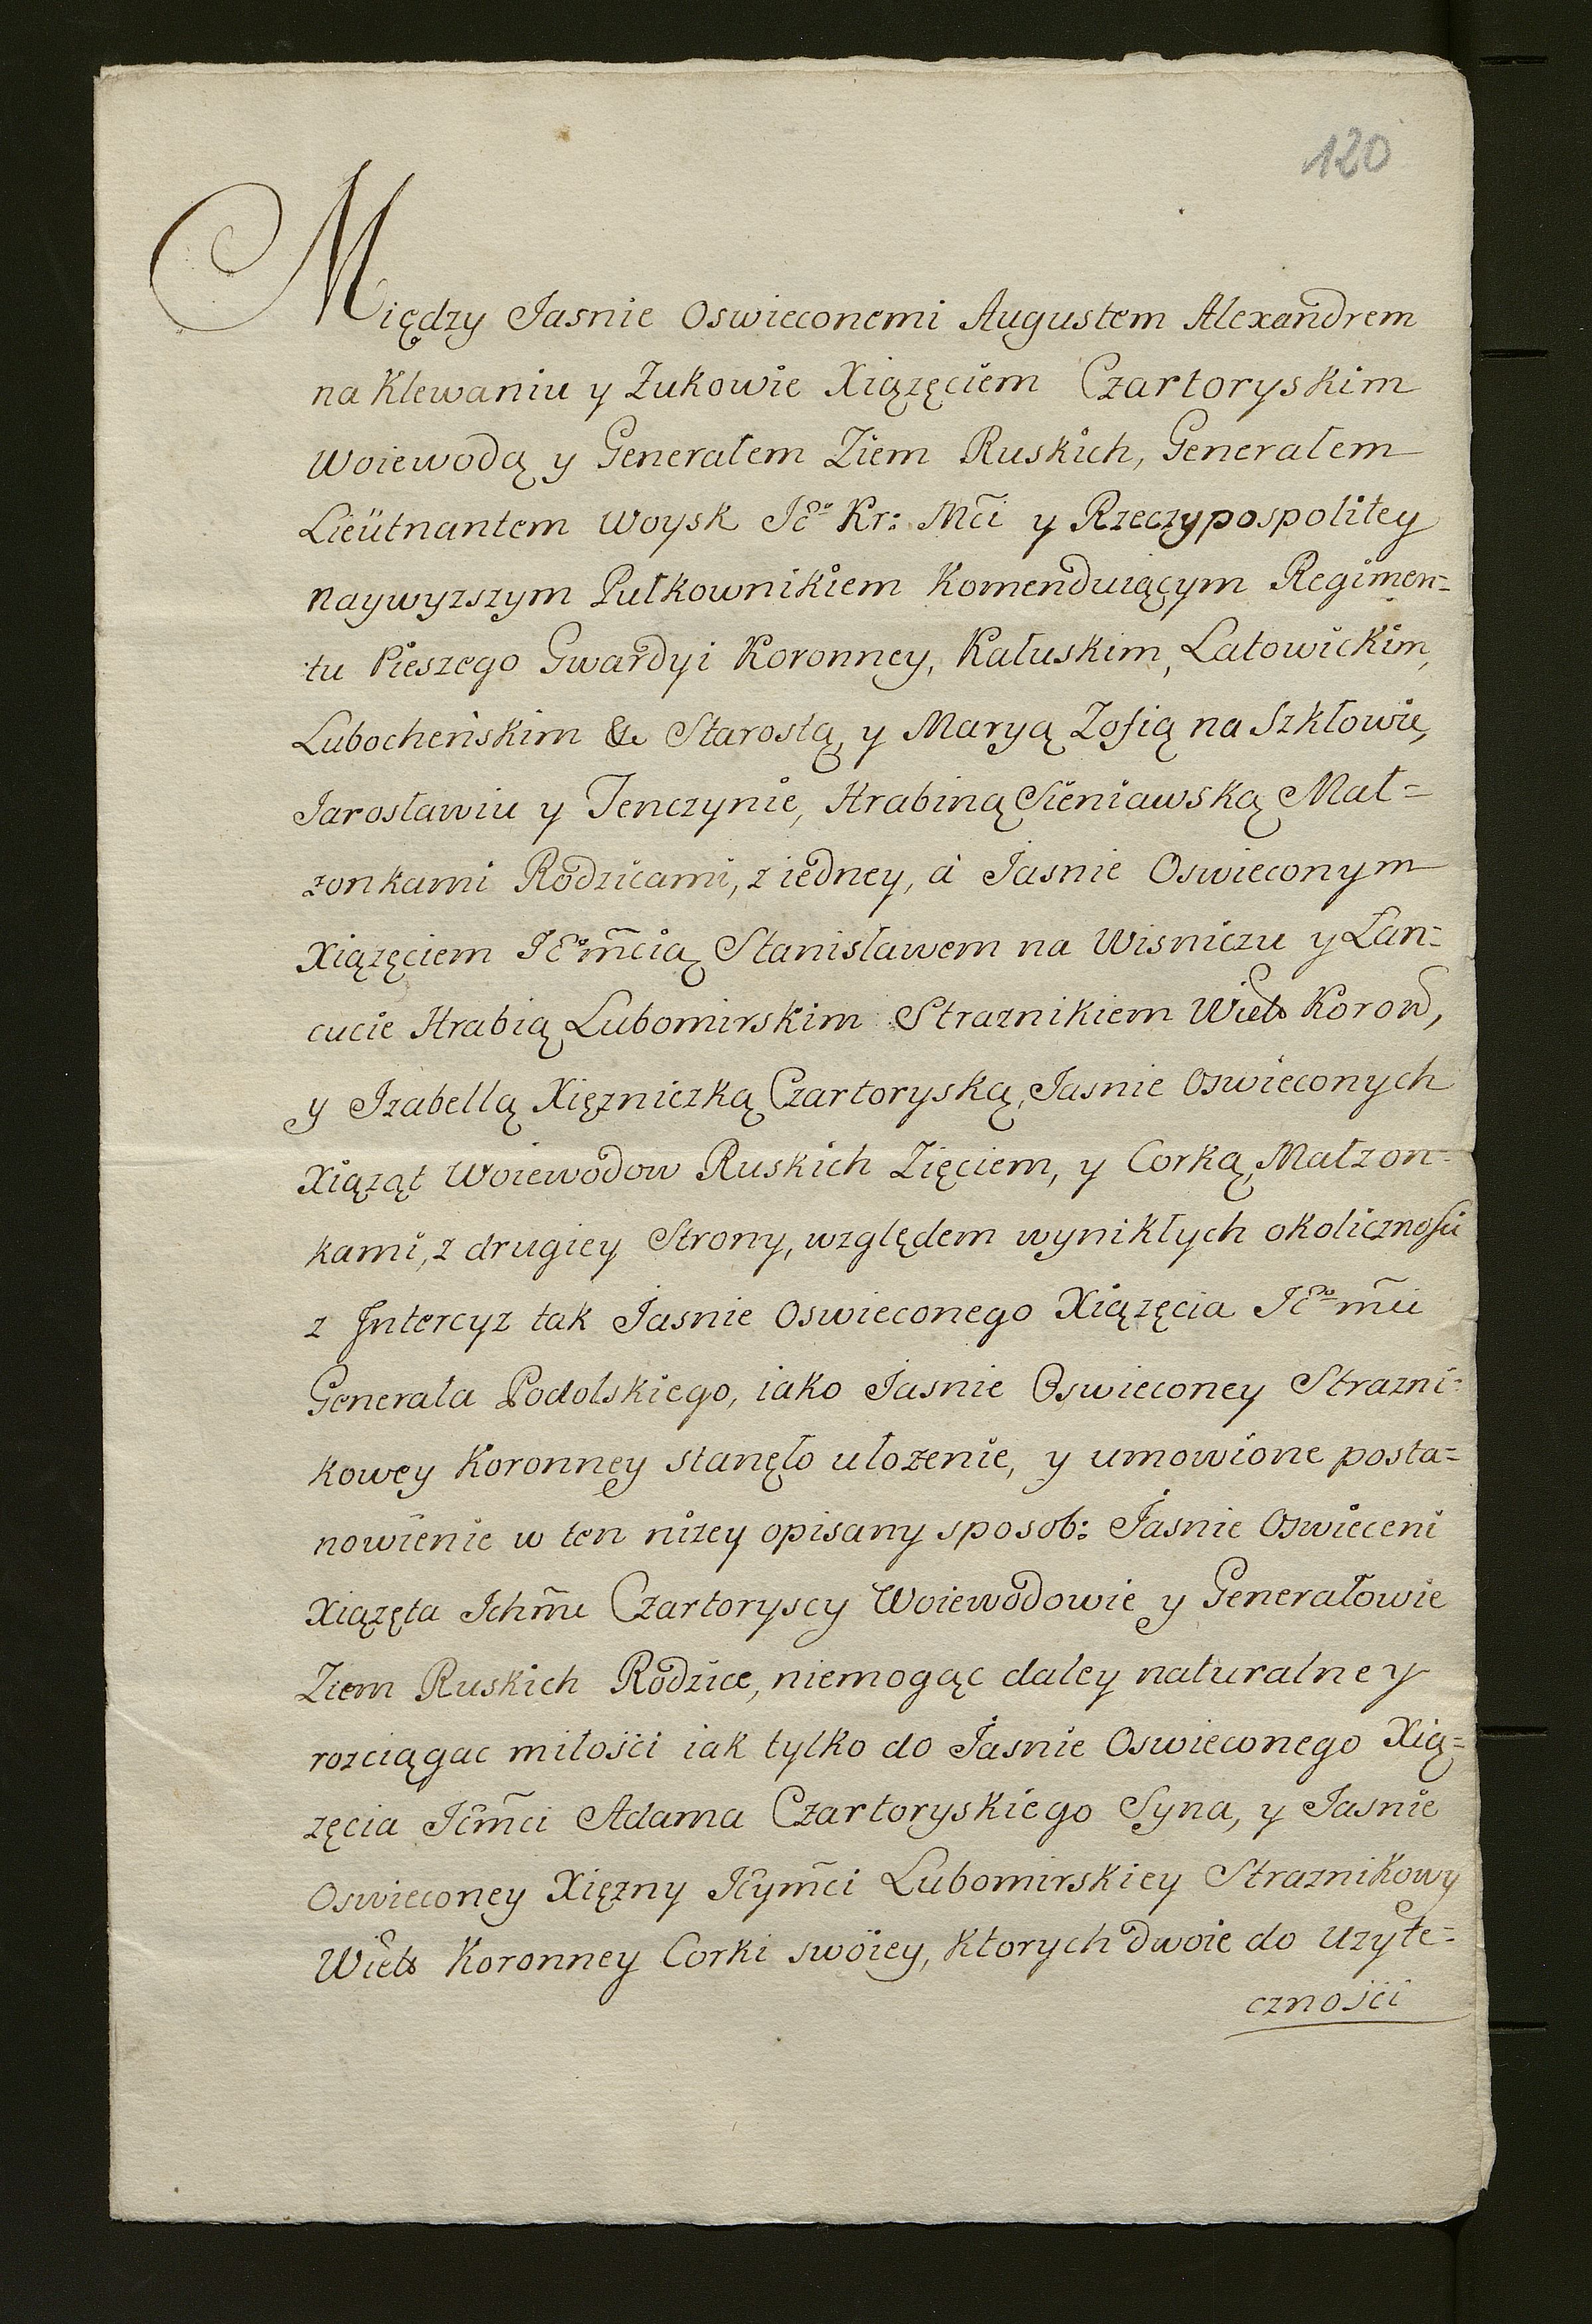 120
Między Jasnie Oswieconemi Augustem Alexandrem
na Klewaniu y Zukowie Xiązęciem Czartoryskim
Woiewodą y Generałem Ziem Ruskich, Generałem
Lieütnantem Woysk Jcgo Kr: Mci y Rzeczypospolitey
naywyzszym Pułkownikiem Komenduiącym Regimen=
tu Pieszego Gwardyi Koronney, Kałuskim, Latowickim,
Lubocheńskim &c Starostą, y Maryą Zofią na Szkłowie,
Jarosławiu y Tenczynie, Hrabiną Sieniawską Mał=
zonkami Rodzicami, z iedney, à Jasnie Oswieconym
Xiązęciem Jcmcią Stanisławem na Wisniczu y Łan=
cucie Hrabią Lubomirskim Straznikiem Wielo Koron,
y Izabellą Xięzniczką Czartoryską, Jasnie Oswieconych
Xiąząt Woiewodow Ruskich Zięciem, y Corką, Małzon=
kami, z drugiey Strony, względem wynikłych okolicznosci
z Intercyz tak Jasnie Oswieconego Xiązęcia Jcgo mci
Generała Podolskiego, iako Jasnie Oswieconey Strazni=
kowey Koronney stanęło ułozenie, y umowione posta=
nowienie w ten nizey opisany sposob: Jasnie Oswieceni
Xiązęta Ichmc Czartoryscy Woiewodowie y Generałowie
Ziem Ruskich Rodzice, niemogąc daley naturalney
rozciągac miłości iak tylko do Jasnie Oswieconego Xią=
zęcia Jcmci Adama Czartoryskiego Syna, y Jasnie
Oswieconey Xięzny Jcymci Lubomirskiey Straznikowy
Wielo Koronney Corki swoiey, ktorych dwoie do uzyte=
czności